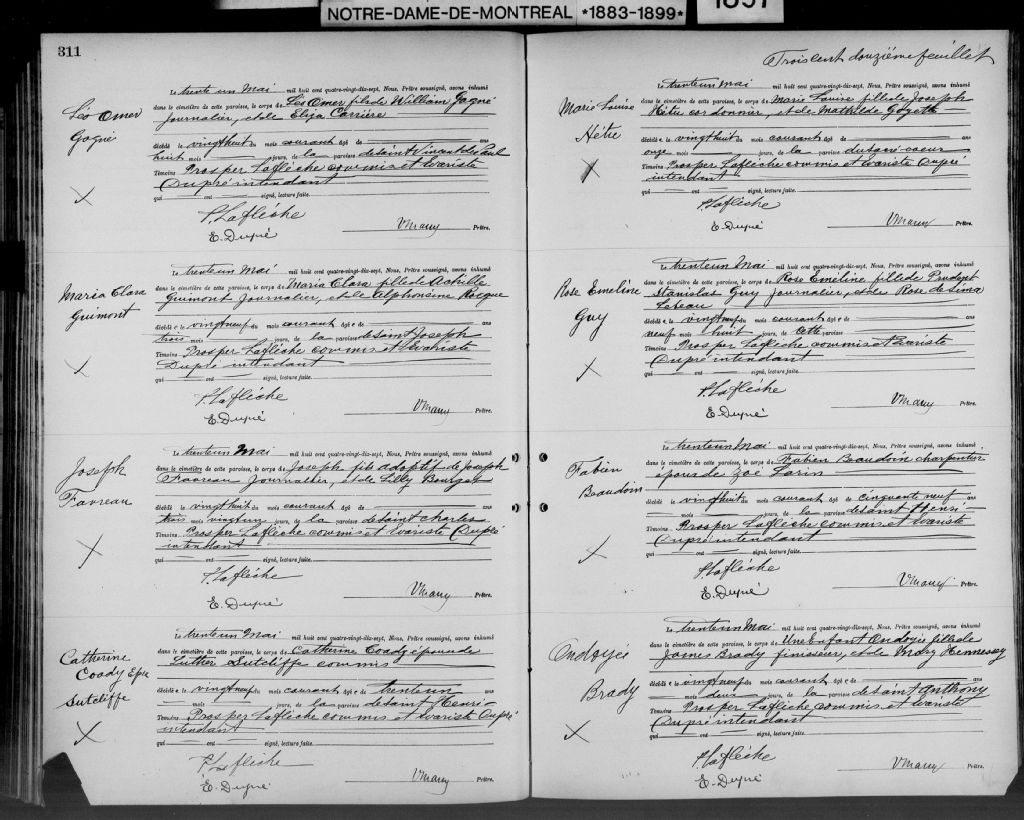 NOTRE-DAME-DE-MONTREAL *1883-1899*
1897
311
Léo Omer
Gagné
Le trente un Mai mil huit cent quatre-vingt-dix-sept, Nous, Prêtre soussigné, avons inhumé
dans le cimetière de cette paroisse, le corps de Léo Omer fils de William Gagné
journalier, et de Eliza Carrière
décédé le vingthuit du mois courant âgé de ans
huit mois jours, de la paroisse de saint Vincent de Paul
Témoins Prosper Laflèche commis et Evariste
Dupré intendant
qui ont signé, lecture faite.
P. Laflèche
E. Dupré
Prêtre.
Maria Clara
Guimont
Le trente un Mai mil huit cent quatre-vingt-dix-sept, Nous, Prêtre soussigné, avons inhumé
dans le cimetière de cette paroisse, le corps de Maria Clara fille de Achille
Guimont journalier, et de Alphonsine Rocque
décédé e le vingtneuf du mois courant âgé e de ans
trois mois jours, de la paroisse de saint Joseph
Témoins Prosper Laflèche commis et Evariste
Dupré intendant
qui ont signé, lecture faite.
P. Laflèche
E. Dupré
Prêtre.
Joseph
Favreau
Le trente un Mai mil huit cent quatre-vingt-dix-sept, Nous, Prêtre soussigné, avons inhumé
dans le cimetière de cette paroisse, le corps de Joseph fils adoptif de Joseph
Favreau journalier, et de Lilly Bourget
décédé le vingthuit du mois courant âgé de ans
trois mois vingt jours, de la paroisse de saint Charles
Témoins Prosper Laflèche commis et Evariste Dupré
intendant
qui ont signé, lecture faite.
P. Laflèche
E. Dupré
Prêtre.
Catherine
Coady Epse
Sutcliffe
Le trente un Mai mil huit cent quatre-vingt-dix-sept, Nous, Prêtre soussigné, avons inhumé
dans le cimetière de cette paroisse, le corps de Catherine Coady épouse de
Luther Sutcliffe commis
décédé e le vingtneuf du mois courant âgé e de trente un ans
mois jours, de la paroisse de saint Henri
Témoins Prosper Laflèche commis et Evariste Dupré
intendant
qui ont signé, lecture faite.
P. Laflèche
E. Dupré
Prêtre.
Trois cent douzième feuillet
Marie Louise
Hétu
Le trente un mai mil huit cent quatre-vingt-dix-sept, Nous, Prêtre soussigné, avons inhumé
dans le cimetière de cette paroisse, le corps de Marie Louise fille de Joseph
Hétu cordonnier, et de Mathilde Goyette
décédé e le vingthuit du mois courant âgé e de ans
onze mois jours, de la paroisse du sacré coeur
Témoins Prosper Laflèche commis et Evariste Dupré
intendant
qui ont signé, lecture faite.
P. Laflèche
E. Dupré
Prêtre.
Rose Emeline
Guy
Le trente un Mai mil huit cent quatre-vingt-dix-sept, Nous, Prêtre soussigné, avons inhumé
dans le cimetière de cette paroisse, le corps de Rose Emeline fille de Prudent
Stanislas Guy journalier, et de Rose de Lima
Lebeau
décédé e le vingtneuf du mois courant âgé e de ans
neuf mois huit jours, de cette paroisse
Témoins Prosper Laflèche commis et Evariste
Dupré intendant
qui ont signé, lecture faite.
P. Laflèche
E. Dupré
Prêtre.
Fabien
Beaudoin
Le trente un Mai mil huit cent quatre-vingt-dix-sept, Nous, Prêtre soussigné, avons inhumé
dans le cimetière de cette paroisse, le corps de Fabien Beaudoin charpentier
époux de Zoé Larin
décédé le vingthuit du mois courant âgé de cinquante neuf ans
mois jours, de la paroisse de saint Henri
Témoins Prosper Laflèche commis et Evariste
Dupré intendant
qui ont signé, lecture faite.
P. Laflèche
E. Dupré
Prêtre.
Ondoyée
Brady
Le trente un Mai mil huit cent quatre-vingt-dix-sept, Nous, Prêtre soussigné, avons inhumé
dans le cimetière de cette paroisse, le corps de Une Enfant Ondoyée fille de
James Brady finisseur, et de Mary Hennessey
décédé e le vingtneuf du mois courant âgé e de ans
mois deux jours, de la paroisse de saint Anthony
Témoins Prosper Laflèche commis et Evariste
Dupré intendant
qui ont signé, lecture faite.
P. Laflèche
E. Dupré
Prêtre.